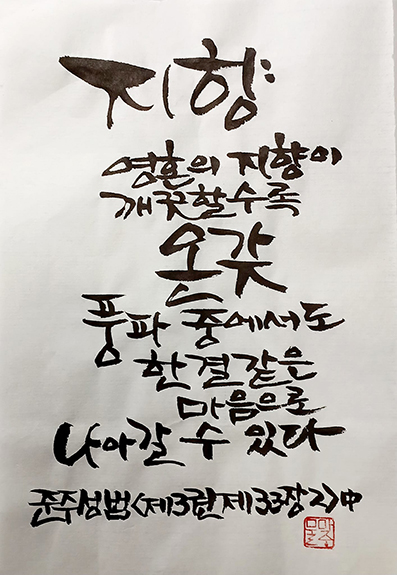 지향
영혼의 지향이
깨끗할수록
온갖
풍파 중에서도
한결같은
마음으로
나아갈 수 있다
준주성범<제3권제33장2>中